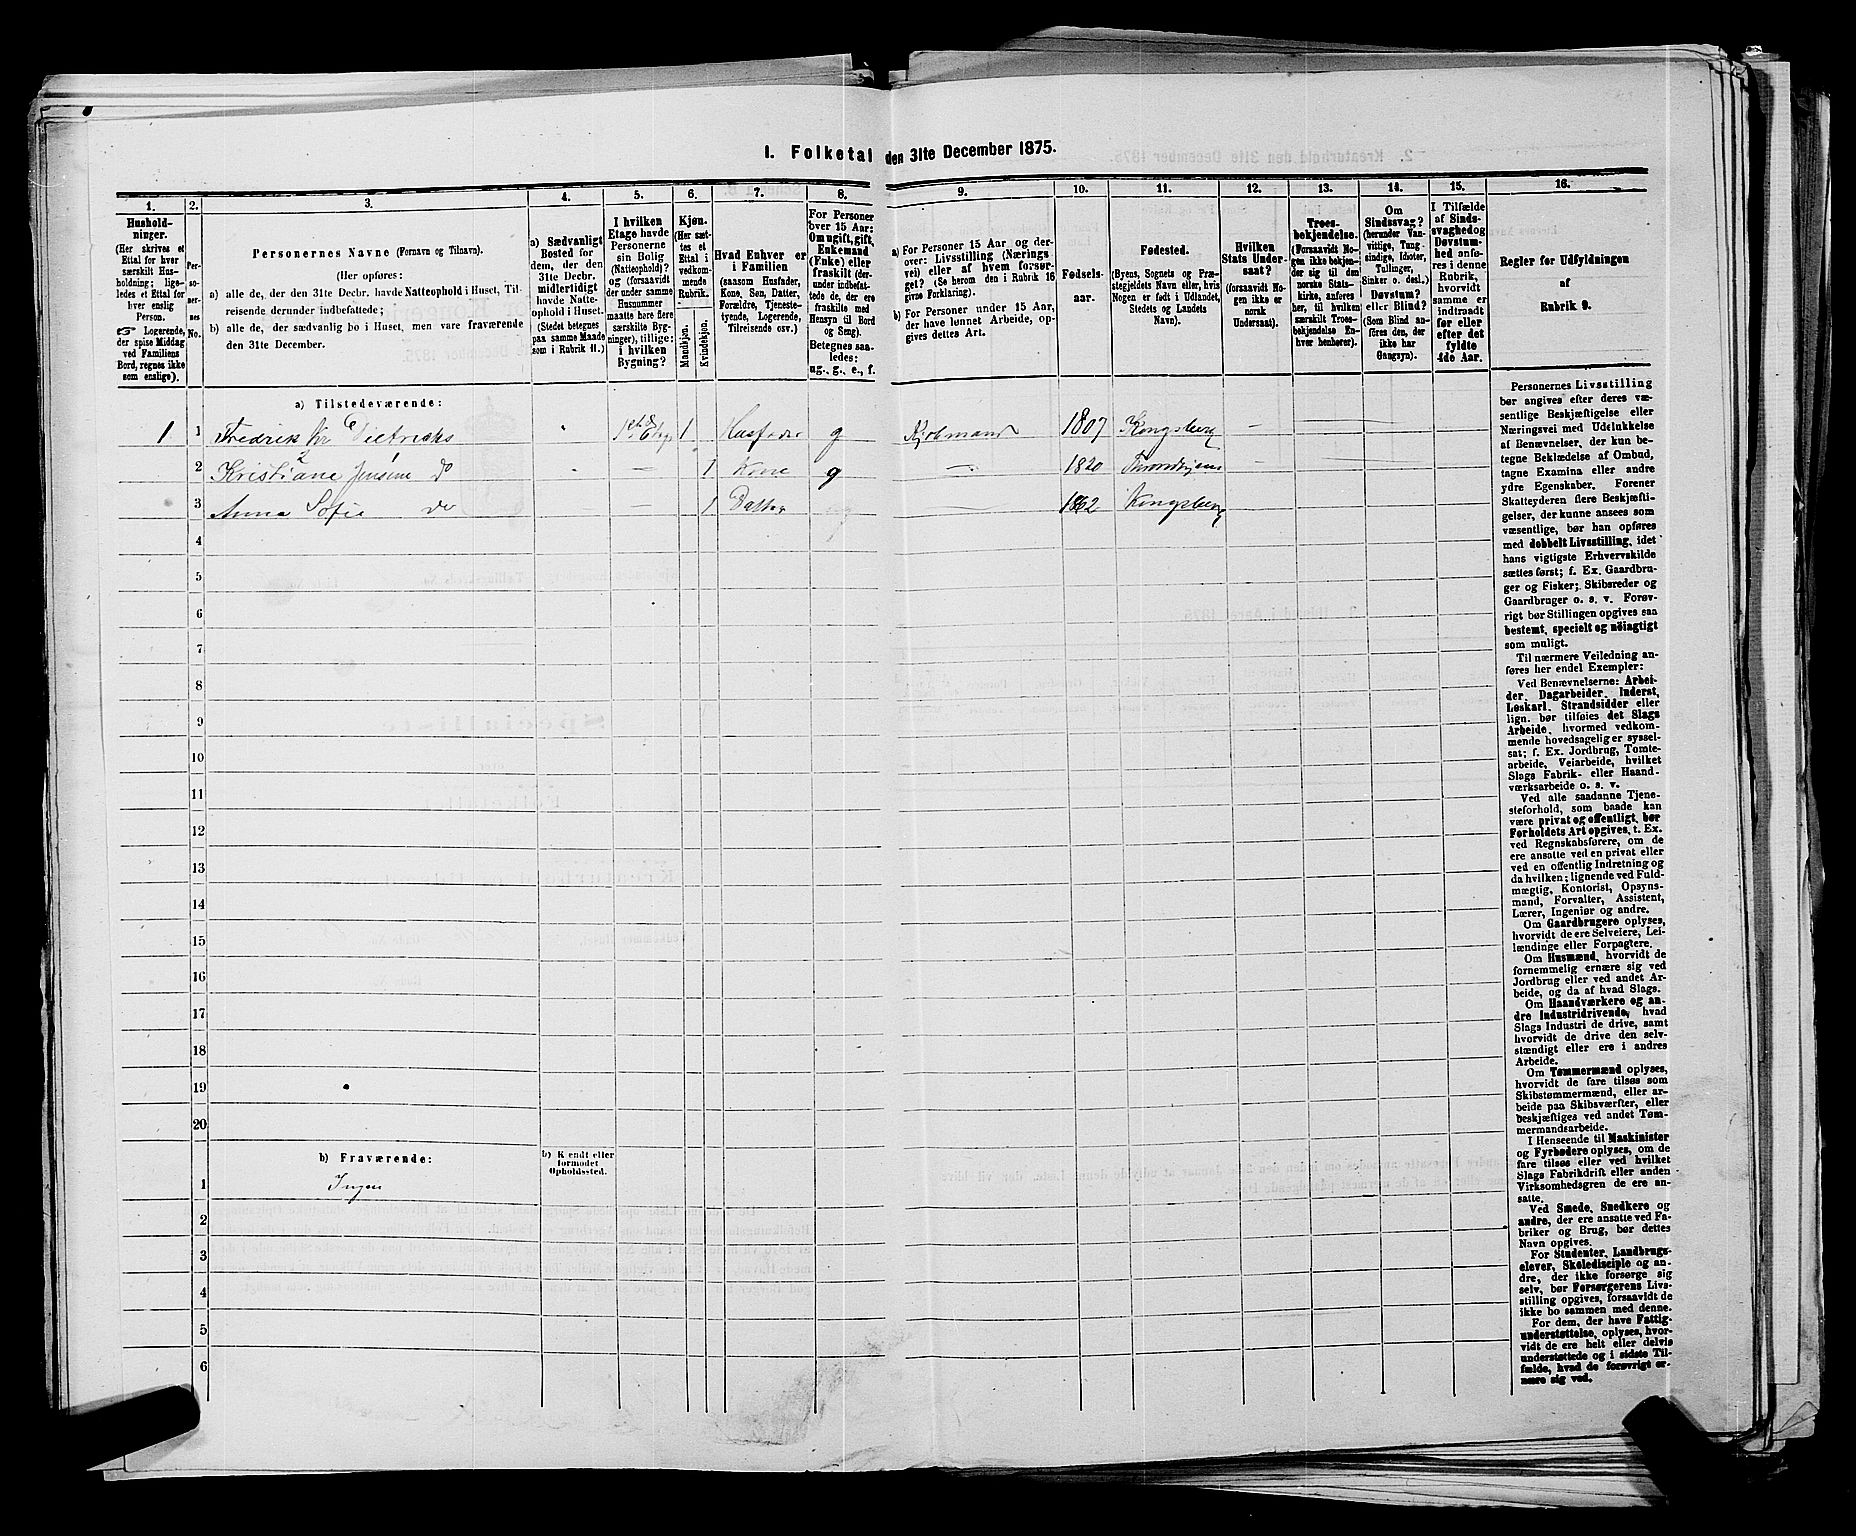 1. Folketal den 31te December 1875.
1.
Hushold-
ninger.
(Her skrives et
Ettal for hver
særskilt Hus-
holdning; lige-
ledes et Ettal for
hver enslig
Person.
☞ Logerende,
der spise Middag
ved Familiens
Bord, regnes ikke
som enslige).
2.
Per-
so-
ner-
nes
No.
3.
Personernes Navne (Fornavn og Tilnavn).
(Her opføres:
a) alle de, der den 31te Decbr. havde Natteophold i Huset, Til-
reisende derunder indbefattede;
b) alle de, der sædvanlig bo i Huset, men vare fraværende
den 31te December.
4.
a) Sædvanligt
Bosted for
dem, der den
31te Decbr.
midlertidigt
havde Natte-
ophold i Huset.
(Stedet betegnes
paa samme Maade
som i Rubrik 11.)
5.
I hvilken
Etage havde
Personerne
sin Bolig
(Natteophold)?
og (forsaavidt
der under samme
Husnummer
maatte høre flere
særskilte Byg-
ninger), tillige:
i hvilken
Bygning?
6.
Kjøn.
(Her sæt-
tes et
Ettal i
vedkom-
mende
Rubrik.
Mandkjøn.
Kvindekjøn.
7.
Hvad Enhver er
i Familien
(saasom Husfader,
Kone, Søn, Datter,
Forældre, Tjeneste-
tyende, Logerende,
Tilreisende osv.)
8.
For Personer
over 15 Aar:
Om ugift, gift,
Enkemand
(Enke) eller
fraskilt (der-
under indbefat-
tede de, der ere
fraskilte med
Hensyn til Bord
og Seng).
Betegnes saa-
ledes:
ug., g., e., f.
9.
a) For Personer 15 Aar og der-
over: Livsstilling (Nærings
vei) eller af hvem forsør-
get? (Se herom den i Rubrik 16
givne Forklaring).
b) For Personer under 15 Aar,
der have lønnet Arbeide, op-
gives dettes Art.
10.
Fødsels-
aar.
11.
Fødested.
(Byens, Sognets og Præ-
stegjeldets Navn eller, hvis
Nogen er født i Udlandet,
Stedets og Landets
Navn).
12.
Hvilken
Stats Under-
saat?
(forsaavidt No-
gen ikke er
norsk
Undersaat).
13.
Troes-
bekjendelse.
(Forsaavidt No-
gen ikke bekjen-
der sig til den
norske Stats-
kirke, anføres
her, til hvilken
særskilt Troes-
bekjendelse En-
hver henhører).
14.
Om
Sindssvag?
(herunder Van-
vittige, Tung-
sindige, Idioter,
Tullinger,
Sinker o. desl.)
Døvstum?
eller Blind?
(Som Blind an-
føres den, der
ikke har
Gangsyn).
15.
I Tilfælde
af Sinds-
svaghed og
Døvstum-
hed anfø-
res i denne
Rubrik,
hvorvidt
samme er
indtraadt
før eller
efter det
fyldte
4de Aar.
16.
Regler for Udfyldningen
af
Rubrik 9.
a) Tilstedeværende:
1 1 Fredrik Kr Dietrichs 1 Husfader g Kjøbmand 1807 Kongsberg
2 Kristiane Jensine do 1 Kone g 1820 Throndhjem
3 Anna Sofie do 1 Datter 1862 Kongsberg
4
5
6
7
8
9
10
11
12
13
14
15
16
17
18
19
20
b) Fraværende:
b) Kendt eller
formodet
Opholdssted.
1 Ingen
2
3
4
5
6
Personernes Livsstilling
bør angives efter deres væ-
sentlige Beskjæftigelse eller
Næringsvei med Udelukkelse
af Benævnelser, der kun be-
tegne Beklædelse af Ombud,
tagne Examina eller andre
ydre Egenskaber. Forener
Skatteyderen flere Beskjæfti-
gelser, der kunne ansees som
væsentlige, bør han opføres
med dobbelt Livsstilling, idet
hans vigtigste Erhvervskilde
sættes først; f. Ex. Gaardbru-
ger og Fisker; Skibsreder og
Gaardbruger o. s. v. Forøv-
rigt bør Stillingen opgives saa
bestemt, specielt og nøiagtigt
som muligt.
Til nærmere Veiledning an-
føres her endel Exempler:
Ved Benævnelserne: Arbei-
der, Dagarbeider, Inderst,
Løskarl, Strandsidder eller
lign. bør tilføies det Slags
Arbeide, hvormed vedkom-
mende hovedsagelig er syssel-
sat; f. Ex. Jordbrug, Tomte-
arbeide, Veiarbeide, hvilket
Slags Fabrik- eller Haand-
værksarbeide o. s. v.
Ved alle saadanne Tjene-
steforhold, som baade kan
være privat og offentligt, bør
Forholdets Art opgives, t. Ex.
ved Regnskabsførere, om de
ere ansatte ved en privat eller
ved en offentlig Indretning og
da hvilken; lignende ved Fuld-
mægtig, Kontorist, Opsyns-
mand, Forvalter, Assistent,
Lærer, Ingeniør og andre.
Om Gaardbrugere oplyses,
hvorvidt de ere Selveiere, Lei-
lændinge eller Forpagtere.
Om Husmænd, hvorvidt de
fornemmelig ernære sig ved
Jordbrug eller ved andet Ar-
beide, og da af hvad Slags.
Om Haandværkere og an-
dre Industridrivende, hvad
Slags Industri de drive, samt
hvorvidt de drive den selv-
stændigt eller ere i andres
Arbeide.
Om Tømmermænd oplyses,
hvorvidt de fare tilsøs som
Skibstømmermænd, eller ar-
beide paa Skibsværfter, eller
beskjæftiges ved andet Tøm-
mermandsarbeide.
I Henseende til Maskinister
og Fyrbødere oplyses, om de
fare tilsøs eller ved hvilket
Slags Fabrikdrift eller anden
Virksomhedsgren de ere an-
satte.
Ved Smede, Snedkere og
andre, der ere ansatte ved Fa-
briker og Brug, bør dettes
Navn opgives.
For Studenter, Landbrugs-
elever, Skoledisciple og an-
dre, der ikke forsørge sig
selv, bør Forsørgerens Livs-
stilling opgives, forsaavidt de
ikke bo sammen med denne.
For dem, der have Fattig-
understøttelse, oplyses, hvor-
vidt de ere helt eller delvis
understøttede og i sidste Til-
fælde, hvad de forøvrigt er-
nære sig ved.